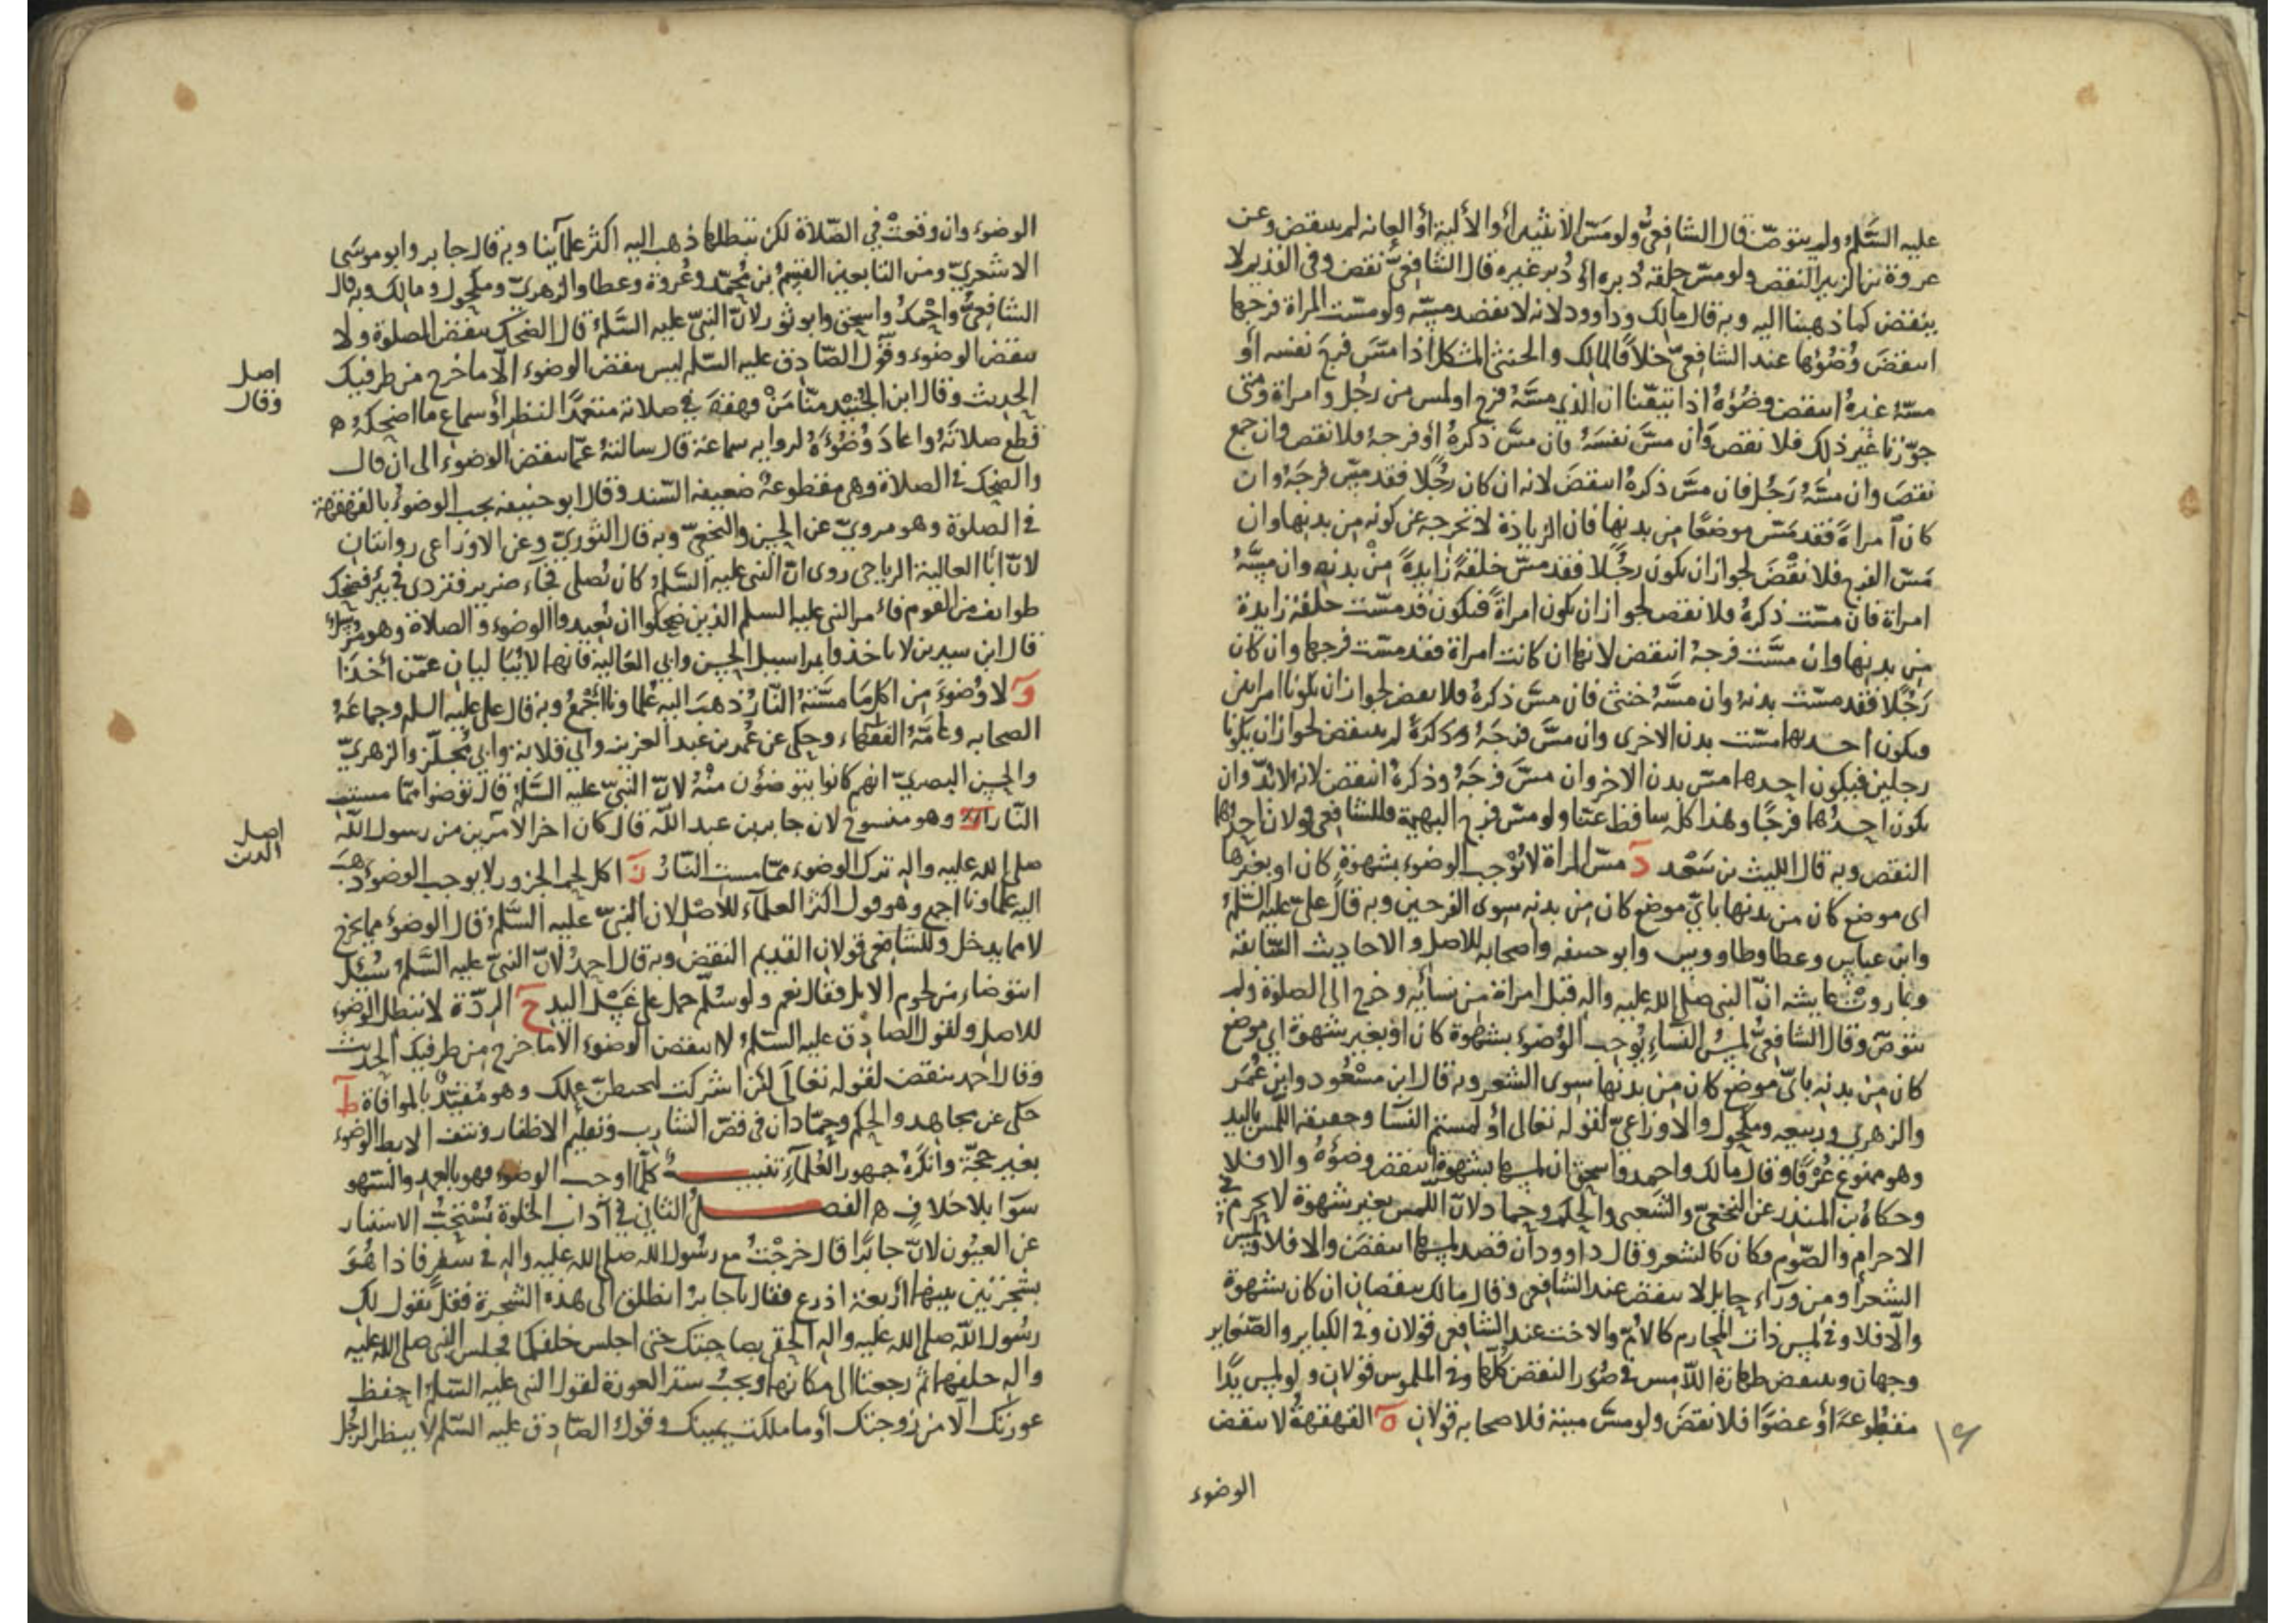 عليه السَّلم ولم يتوضّ قال الشافعيُّ ولو مسّ الأنثيين أو الألية أو العانه لم ينتقض وعن
عروة بن الزبير النقض ولو مسّ حلقه دُبره أو دُبر غيره قال الشافعيّ نقض وفي القديم لا
ينقض كما ذهبنا اليه وبه قال مالك وداوود لانه لا يقصد مسّه ولو مسّت المراة فرجها
انتقض وُضُوؤها عند الشافعيّ خلافًا لمالك والخنثى المشكل اذا مسّ فرج نفسه أو
مسّهُ غيرهُ انتقض وضُوُهُ اذا تيقّنّا ان الذي مسَّهُ فرج اولمس من رجُل وامراة ومتى
جوّزنا غير ذلك فلا نقض وَان مسَّ نفسَهُ فان مسَّ ذكرهُ أو فرجهُ فلا نقض وان جمع
نقضَ وان مسَّهُ رَجُل فان مسَّ ذكرهُ انتقضَ لانه ان كان رجُلًا فقد مسّ فرجَهُ وان
كان امراةً فقد مَسّ موضعًا من بدنها فان الزيادة لا تخرجه عن كونه من بدنها وان
مَسّ الفرج فلا نقْضَ لجواز ان يكون رجُلًا فقد مسّ خلقةً زايدةً مِنْ بدنهِ وان مسَّهُ
امراة فان مسّت ذكرهُ فلا نقض لجواز ان يكون امراةً فيكون قد مسّت خلقة زايدة
من بدنها وان مسَّت فرجهُ انتقض لانها ان كانت امراة فقد مسّت فرجها وان كان
رَجُلًا فقد مسّت بدنهُ وان مسَّهُ خنثى فان مسَّ ذكرهُ فلا نقض لجواز ان يكونا امراتين
فيكون احديهما مسّت بدن الاخرى وان مسَّ فرجَهُ وذكرهُ لم ينتقض لجواز ان يكونا
رجلين فيكون احدهما مسّ بدن الاخر وان مسَّ فرجَهُ وذكرهُ انتقض لانه لابُدّ وان
يكون احدُهما فرجًا وهذا كله ساقط عنّا ولو مسّ فرج البهيمة فللشافعي قولان احدُهما
النقض وبه قال الليث بن سَعْد دَ مسّ المراة لا يُوْجب الوضوء بشهوةٍ كان او بغيرها
اى موضع كان من بدنها بايّ موضع كان من بدنه سوى الفرجين وبه قال عليٌّ عليه السَّلمُ
وابن عباس وعطا وطاووس وابو حنيفه واصحابه للاصل والاحاديث السّابقه
وبما روتْ عايشه انّ النبي صلى الله عليه واله قبل امراة من نسائه وخرج الى الصلوة ولم
يتوضّ وقال الشافعيُّ لمسُ النسَاءِ يُوجب الوُضوء بشهوة كان اوْ بغير شهوة اي موضع
كان من بدنه بايّ موضع كان من بدنها سوى الشعر وبه قال ابن مسْعُود وابن عُمر
والزهري وربيعه ومكحول والاوزاعيّ لقوله تعالى أو لمستم النسَا وحقيقته اللمس باليد
وهو ممنوع عُرفًا وقال مالك واحمد واسحق ان لمسها بشهوة انتقض وضوُؤُه والا فلا
وحكاهُ بن المنذر عن النخعيّ والشَعبي والحكم وحماد لانّ اللّمس بغير شهوة لا يحرم في
الاحرام والصّوم فكان كالشعر وقال داوود ان قصد لمسها انتقضَ والا فلا ولمس
الشعر أو من وراء حايل لا ينقض عند الشافعي وقال مالك ينقضان ان كان بشهوة
والّا فلا وفي لمس ذات المحارم كالامّ والاخت عند الشافعي قولان وفي الكباير والصّغاير
وجهان وينتقض طهارة اللّامس في صُوَر النقض كلّها وفي الملموس قولان ولو لمس يدًا
مقطوعةً أو عضوًا فلا نقضَ ولو مسَّ ميتة فلاصحابه قولان هَ القهقههُ لا ينقض
الوضوء
الوضوء وان وقعتْ في الصّلاة لكن تبطلها ذهب اليه اكثر علمائنا وبه قال جابر وابو موسَى
الاشعريّ ومن التابعين القسمُ بن مُحمّد وعُروة وعطا والزهريّ ومكحول ومالك وبه قال
الشافعيُّ واحْمدُ واسحق وابو ثور لانّ النبيّ عليه السَّلمُ قال الضحك ينقض الصلوة ولا
ينقض الوضوء وقول الصّادق عليه السّلم ليس ينقض الوضوء الّا ما خرج من طرفيك
الحديث وقال ابن الجُنَيْد منّا مَنْ قهقهَ في صلاته متعمّدًا لنظر أو سماع ما اضحكهُ
قطع صلاتَهُ واعادَ وُضُوءَهُ لروايه سماعة قال سالتهُ عمّا ينقض الوضوء الى ان قال
والضحك في الصلاة وهي مقطوعةٌ ضعيفه السّند وقال ابو حنيفه يجب الوضوُ بالقهقهة
في الصلوة وهو مرويّ عن الحسن والنخعيّ وبه قال الثوريّ وعن الاوزاعي روايتان
لانّ أبا العالية الرياحي روى انّ النبي عليه السَّلمُ كان يُصلي فجاء ضرير فتردى في بئر فضحك
طوايف من القوم فامر النبي عليه السلم الذين ضحكوا ان يُعيدوا الوضوء والصلاة وهو مُرسل
قال ابن سيرين لا ياخذوا بمراسيل الحسن وابي العَالية فانهما لا يُبَاليان عمّن أخَذَا
وَ لا وُضوءَ من اكل مَا مسَّتْهُ النّارُ ذهبَ اليه عُلماونا أجْمعُ وبه قال علي عليه السلم وجماعَةُ
الصحابه وعامَّهُ الفقهاء وحكى عن عُمر بن عبد العزيز وأبي قلابة وأبي مُجلّز والزهريّ
والحسن البصريّ انهم كانوا يتوضؤن منْهُ لانّ النبيّ عليه السَّلمُ قال توضوا ممّا مسته
النّار وهو منسوخ لان جابر بن عبد اللّه قال كان اخر الامرين من رسول اللّه
صلى الله عليه واله ترك الوضوء ممّا مسته النّارُ زَ اكل لحم الجزور لا يوجب الوضوءَ ذهبَ
اليه علماونا اجمع وهو قول اكثر العلمآء للاصْل لان النّبيّ عليه السَّلمُ قال الوضوُ مما يخرج
لا مما يدخل وللشافعي قولان القديم النقض وبه قال احمدُ لانّ النبيّ عليه السَّلمُ سُئِل
انتوضاء من لحوم الابل فقال نعم ولو سُلّم حمل على غَسْل اليد حَ الرِدّة لا تبطل الوضوء
للاصل ولقول الصادِق عليه السّلمُ لا ينقض الوضوء الّا ما خرج من طرفيك الحديث
وقال احمد ينقض لقوله تعالَى لئن اشركت لحبطنّ عملك وهو مُقيّدٌ بالموافاة طَ
حكى عن مجاهد والحكم وحمّاد ان في قصّ الشارب وتقليم الاظفار ونتف الابط الوضوء
بغير حجّة وأنكرهُ جمهور العُلمآءِ تنبيــهٌ كلّما اوجب الوضوء فهو بالعمد والسّهو
سوَآ بلا خلاف ه الفصــلُ الثاني في آدَاب الخلوة يُسْتحَبُّ الاستتار
عن العيُون لانّ جابرًا قال خرجْتُ مع رسُول الله صلى الله عليه واله في سفر فاذا هُوَ
بشجرتين بينهما أربعة اذرع فقال يا جابرُ انطلق الى هذه الشجرة فقلْ يقول لكِ
رسُول اللّه صلى الله عليه واله الْحقي بصاحبتك حتى اجلس خلفكما فجلس النبي صلى الله عليه
واله خلفهما ثم رجعتا الى مكانهما ويجبُ ستر العورة لقول النبي عليه السّلمُ احفظ
عورتك الّا من زوجتك أو ما ملكت يمينك وقول الصّادق عليه السّلم لا ينظر الرجُل
اصل
وقال
اصل